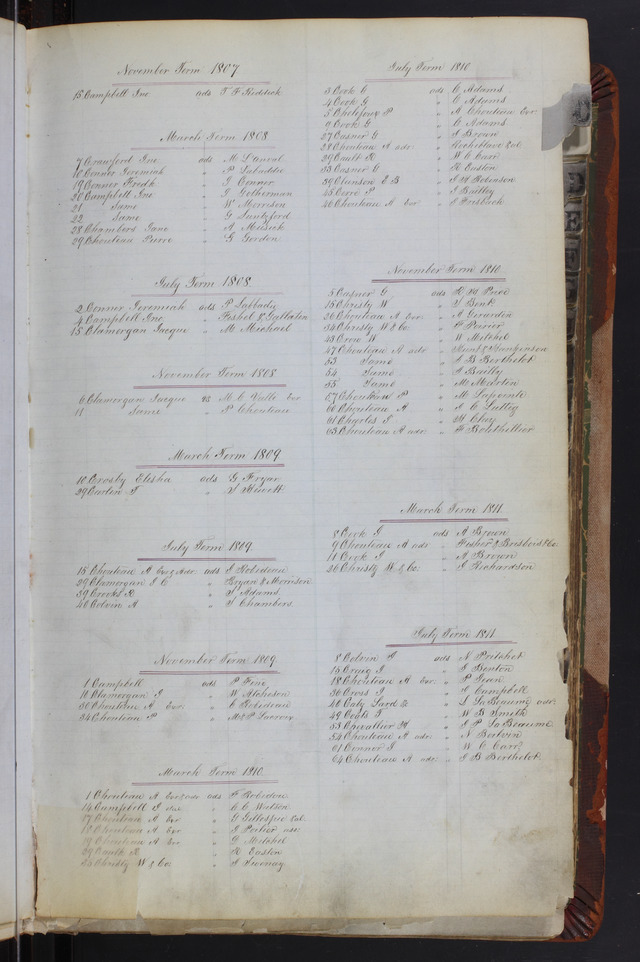 November Term 1807
15 Campbell Jno ads T F Reddick
March Term 1808
7 Crawford Jno ads M
10 Conner Jeremiah " P Labaddie
19 Conner Fredk " J Conner
20 Campbell Jno " J
21 Same " W Morrison
22 Same " G
28 Chambers Jane " A Musick
29 Chouteau Pierre " G Gordon
July Term 1808
2 Conner Jeremiah ads P Labbadie
4 Campbell Jno " Fishel & Gallatin
15 Clamorgan Jacque " M Michael
November Term 1808
6 Clamorgan Jacque vs M C Valle Exr
11 Same " P Chouteau
March Term 1809
10 Crosby Elisha ads G Fryar
29 Carlin T "
July Term 1809
15 Chouteau A Exr & Adr ads J Robideau
29 Clamorgan J C " Bryan & Morrison
39 Crooks R " S Adams
40 Colvin A " S Chambers
November Term 1809
1 Campbell ads P
10 Clamorgan J " W Atcheson
30 Chouteau A Exr " C Robideau
34 Chouteau P "
March Term 1810
1 Chouteau A Exr & adr ads F Robidou
14 Campbell J " C C Watson
17 Chouteau A Exr " G Gillespie Col
Chouteau A Exr " J Portier
19 Chouteau A Exr " G Mitchel
29 Cault R " R Easton
34 Christy W & Co " J Sweeney
July Term 1810
3 Cook C ads C Adams
4 Cook G " C Adams
5 P " A Chouteau Exr
9 Cook G " C Adams
27 Casner G " J Brown
28 Chouteau A adr " Rocheblave Col
29 Cault R " W C Carr
33 Casner C " R Easton
39 Clunson E B " J H Robinson
45 Cerre P " J Bailey
46 Chouteau A Exr " J
November Term 1810
5 Casner G ads H M Price
15 Christy W " S Bent
26 Chouteau A Exr " A Gerardin
34 Christy W & Co " P Perier
45 Crow W " W Mitchel
47 Chouteau A adr " Hunt &
53 Same " J B Berthelot
54 Same " J Bailly
55 Same " M Martin
57 Chouteau P " M Lapointe
60 Chouteau A " J C
61 Charles J " H Clay
63 Chouteau A adr " F Bouthellier
March Term 1811
8 Cook G ads A Brown
9 Chouteau A adr " Hosher & Co
11 Cook J " A Brown
26 Christy W & Co " J Richardson
July Term 1811
8 Colvin F ads N Pritchet
15 Craig J " S Benton
18 Chouteau A Exr " P
30 Crous J " J Campbell
46 Caty Lard & " L La Beaume adr
49 Coats J " W B Smith
53 Chevallier H " J P La Beaume
54 Chouteau A adr " N Boilvin
61 Connor J " W C Carr
64 Chouteau A adr " J B Berthelot